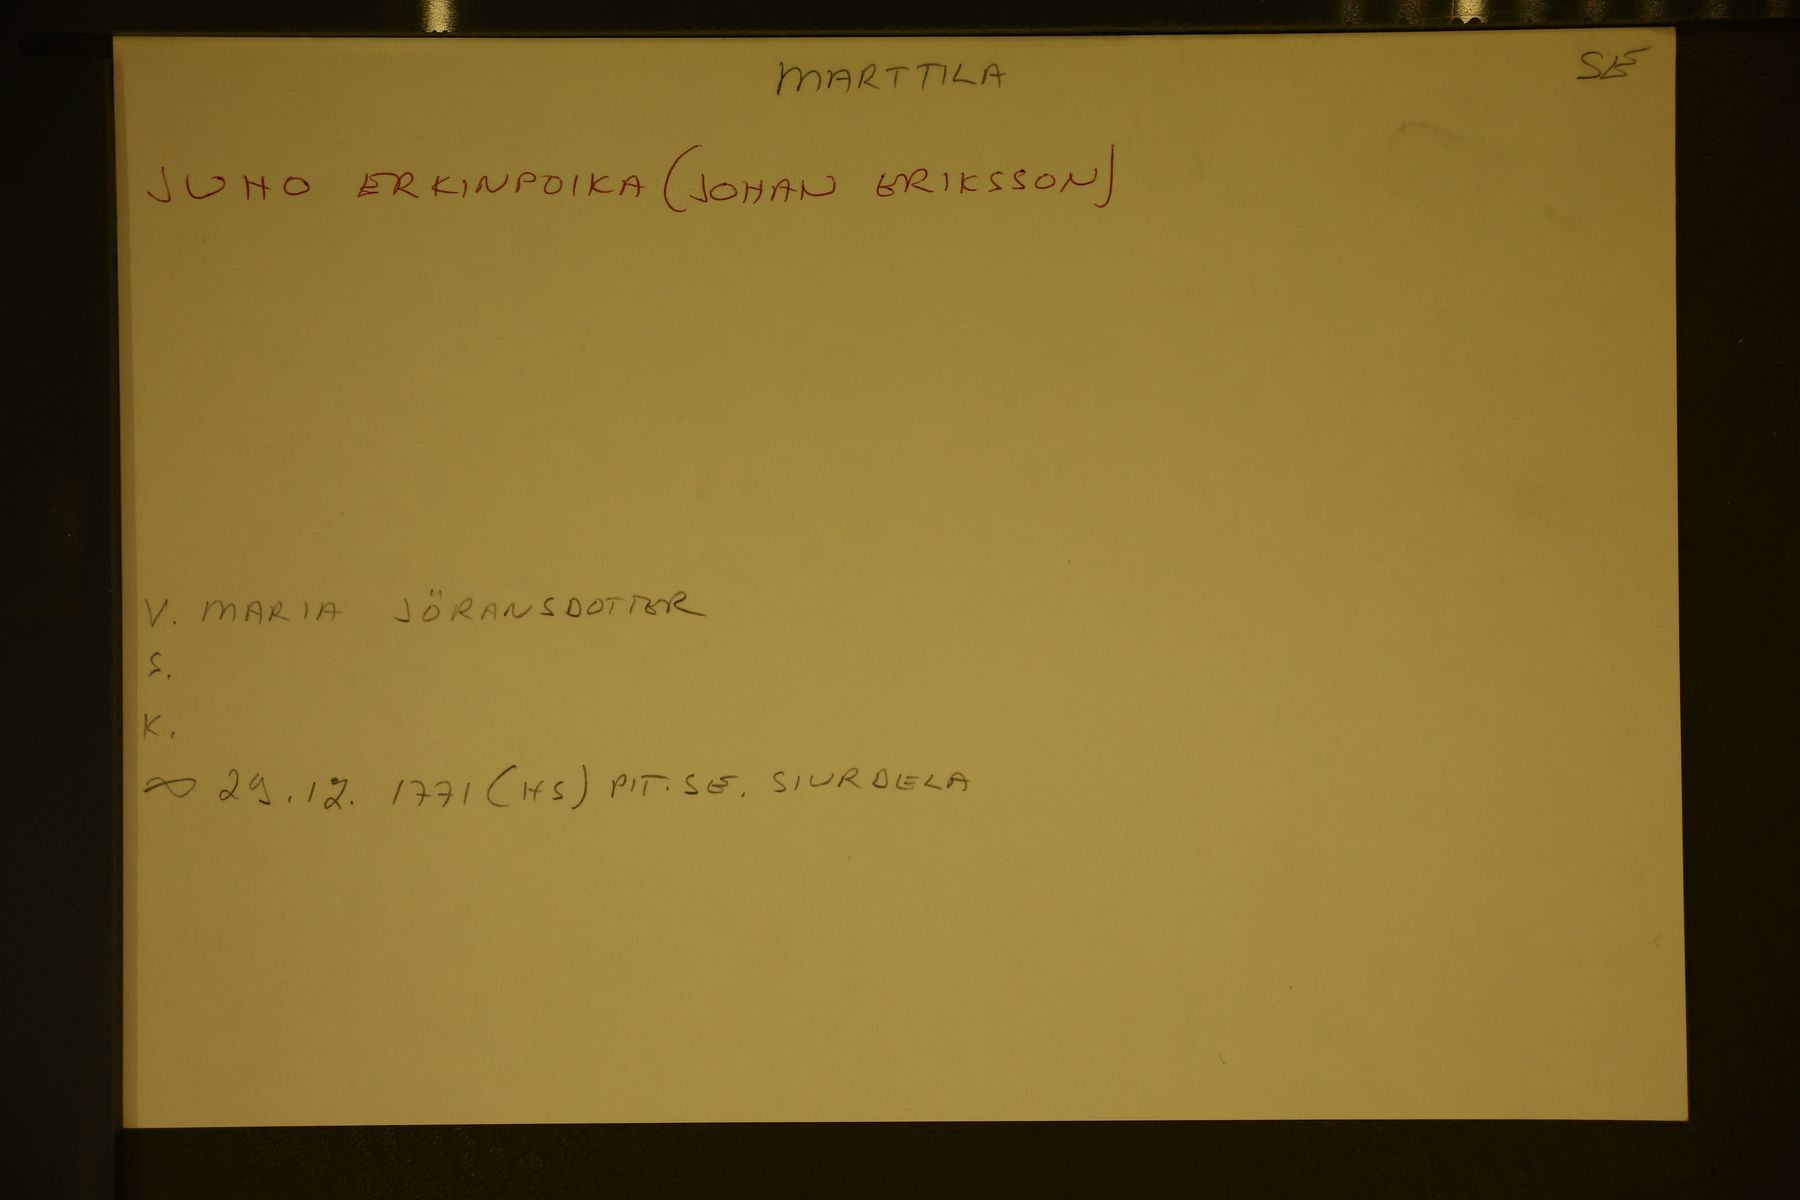 MARTTILA SE
JUHO ERKINPOIKA (JOHAN ERIKSSON)
V. MARIA JÖRANSDOTTER
S.
K.
∞ 29.12. 1771 (HS) PIT. SE. SIURDELA